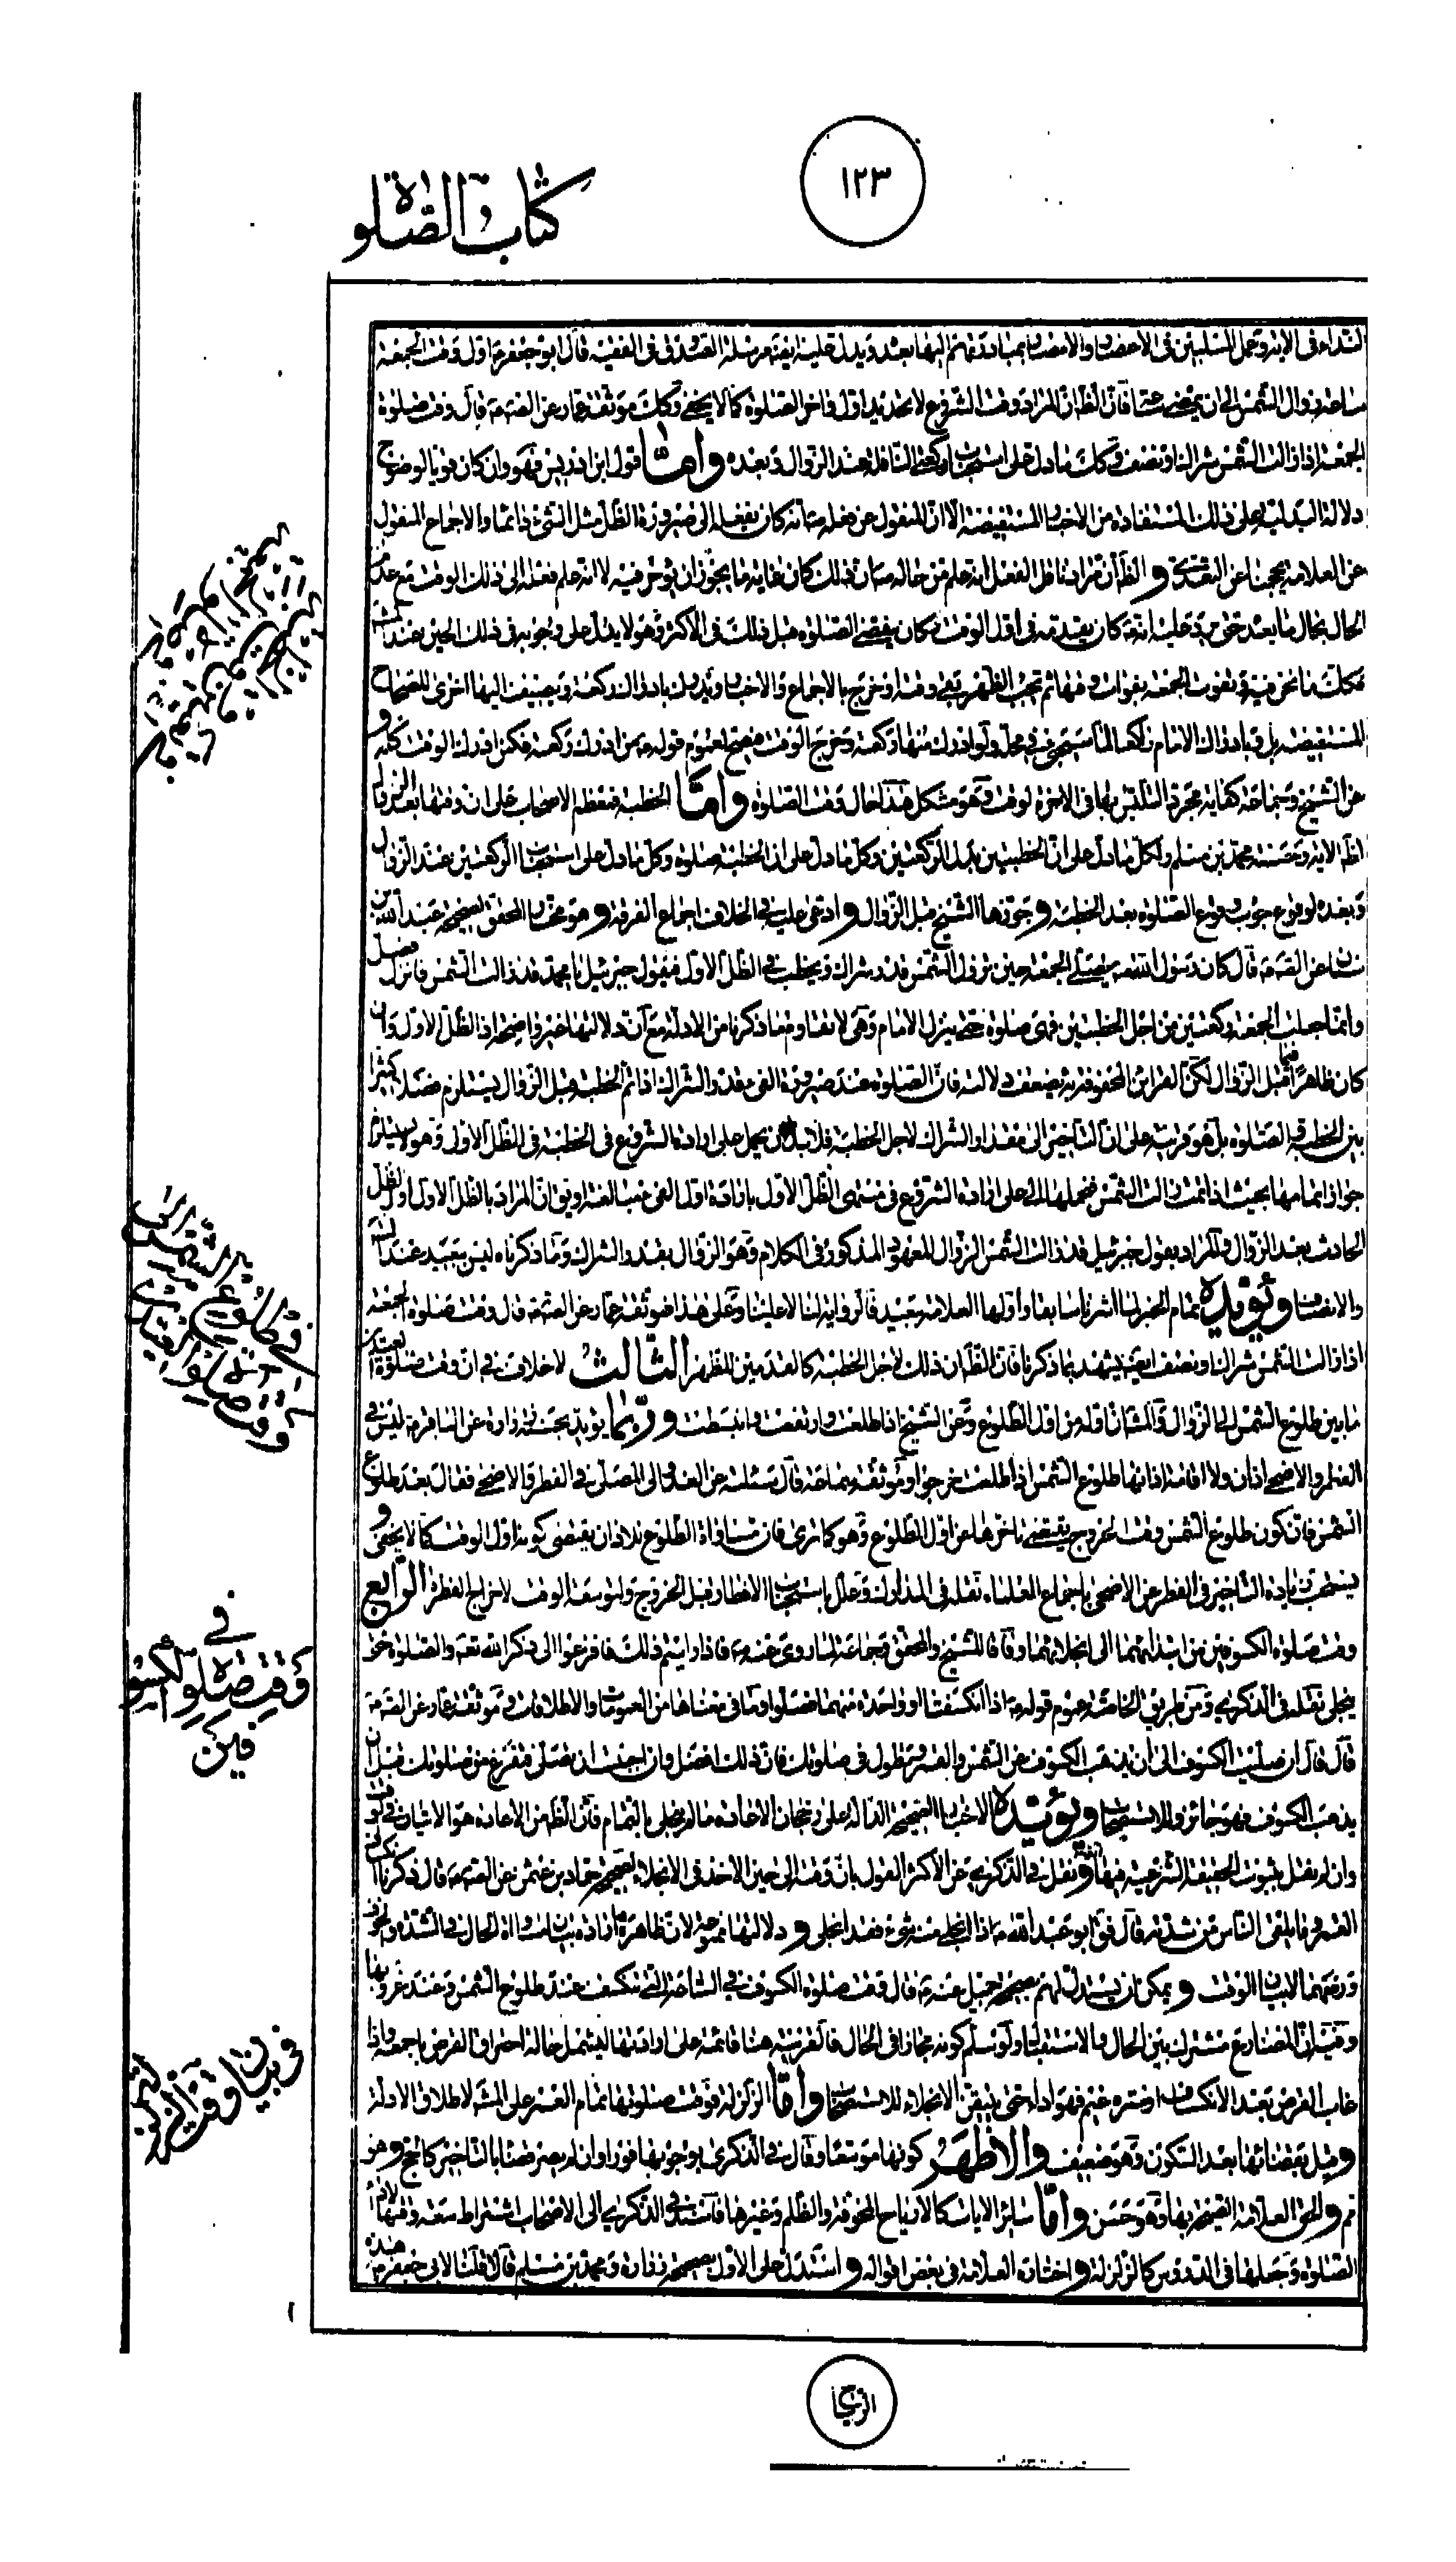 ١٢٣
كتاب الصلوة
النداء فى الاية وعمل المسلمين فى الاعصار والامصار بمبادرتهم اليها بعده ويدل عليه ايضا مرسلة الصدوق فى الفقيه قال ابو جعفر ع اول وقت الجمعة
ساعة زوال الشمس الى ان يمضى فان الظ ان المراد وقت الشروع لا تحديد اول واخر الصلوة كما لا يخفى وكك موثقة عمار عن الصادق قال وقت صلوة
الجمعة اذا زالت الشمس شراك او نصف وكك ما دل على استحباب ركعتى النافلة عند الزوال وبعده واما قول ابن ادريس فهو وان كان قويا لوضوح
دلالة البدلية على ذلك المستفادة من الاخبار المستفيضة الا ان المنقول عن فعله ص انه كان يفعله الى صيرورة الظل مثل الشىء دائما والاجماع المنقول
عن العلامة يحجبنا عن التعدى و الظ ان مراد ناقل الفعل انه علم من حاله ص ان ذلك كان غاية ما يجوز ان يؤخر فيه لا انه علم فعله الى ذلك الوقت مع عدم
الحال بحال ما بعد حتى يرد عليه انه كان يقدمه فى اول الوقت فكان يمضى الصلوة قبل ذلك فى الاكثر وهو لا يدل على وجوبه فى ذلك الحين عند
فكك ما نحن فيه وتفوت الجمعة بفوات وقتها ثم تجب الظهر بقى وقته او خرج بالاجماع والاخبار ويدرك بادراك ركعة ويضيف اليها اخرى للصحاح
المستفيضة بل وبادراك الامام راكعا لما سيجىء فى محله ولو ادرك منها ركعة وخرج الوقت فيصح لعموم قوله ص من ادرك ركعة فكمن ادرك الوقت كله و
عن الشيخ وجماعة كفاية مجرد التلبس بها فى الاخر لوقت وهو مشكل هذا حال وقت الصلوة واما الخطبة فمعظم الاصحاب على ان وقتها بعد الزوال
لظ الاية وحسنة محمد بن مسلم ولكل ما دل على ان الخطبتين بدل الركعتين وكل ما دل على ان الخطبة صلوة وكل ما دل على استحباب الركعتين عند الزوال
وبعده لوقوع جوب وقوع الصلوة بعد الخطبة و جوزها الشيخ قبل الزوال و ادعى عليه فى الخلاف اجماع الفرقة و هو مختار المحقق لصحيحة عبد الله بن
سنان عن الصادق قال كان رسول الله ص يصلى الجمعة حين تزول الشمس قدر شراك ويخطب فى الظل الاول فيقول جبرئيل يا محمد قد زالت الشمس فانزل فصل
وانما جعلت الجمعة ركعتين من اجل الخطبتين فهى صلوة حتى ينزل الامام وهى لا تقاوم ما ذكرنا من الادلة مع ان دلالتها غير واضحة اذ الظل الاول وان
كان ظاهرا فيما قبل الزوال لكن القرائن المحفوفة به يضعف دلالته فان الصلوة عند صيرورة الفىء قدر الشراك اذا تم الخطبة قبل الزوال يستلزم فصلا كثيرا
بين الخطبة والصلوة بل هو قرينة على ان التاخير الى مقدار الشراك لاجل الخطبة فلابد ان يحمل على ارادة الشروع فى الخطبة فى الظل الاول وهو لا يستلزم
جواز اتمامها بحيث اذا تمت زالت الشمس فيحملها اما على ارادة الشروع فى منتهى الظل الاول بارادة اول الفىء مبالغة او يق ان المراد بالظل الاول اول الظل
الحادث بعد الزوال والمراد بقول جبرئيل قد زالت الشمس الزوال المعهود المذكور فى الكلام وهو الزوال بقدر الشراك وما ذكرناه ليس ببعيد عند
والانصاف ويؤيده تمام الخبر لما اشرنا سابقا واولها العلامة ببعيد فالرواية لنا لا علينا وعلى هذا فموثقة عمار عن الصادق قال وقت صلوة الجمعة
اذا زالت الشمس شراك او نصف ايضا يشهد بما ذكرنا فان الظ ان ذلك لاجل الخطبة كالقدمين للظهر الثالث لا خلاف فى ان وقت صلوة العيدين
ما بين طلوع الشمس الى الزوال والمش ان اوله من اول الطلوع وعن الشيخ اذا طلعت وارتفعت وانبسطت وربما يؤيد بحسنة زرارة عن الباقر ع ليس فى
الفطر والاضحى اذان ولا اقامة اذانهما طلوع الشمس اذا طلعت خرجوا وموثقة سماعة قال سئلته عن الغدو الى المصلى فى الفطر والاضحى فقال بعد طلوع
الشمس فان كون طلوع الشمس وقت الخروج يقتضى تاخرها عن اول الطلوع وهو كما ترى فان مساواة الطلوع للاذان يقتضى كونه اول الوقت كما لا يخفى و
يستحب زيادة التاخير فى الفطر عن الاضحى باجماع العلماء نقله فى المدارك وعلل باستحباب الافطار قبل الخروج ولتوسعة الوقت لاخراج الفطرة الرابع
وقت صلوة الكسوفين من ابتدائهما الى انجلائهما وفاقا للشيخ والمحقق وجماعة لما روى عنه ص فاذا رايتم ذلك فافزعوا الى ذكر الله تعالى والصلوة حتى
ينجلى نقله فى الذكرى ومن طريق الخاصة عموم قوله ص اذا انكسفتا او واحدة منهما فصلوا وما فى معناها من العمومات والاطلاقات وموثقة عمار عن الصادق
قال قال ان صليت الكسوف الى ان يذهب الكسوف عن الشمس والقمر وتطول فى صلوتك فان ذلك افضل وان احببت ان تصلى فتفرغ من صلوتك قبل ان
يذهب الكسوف فهو جائز وللاستصحاب ويؤيده الاخبار الصحيحة الدالة على رجحان الاعادة ما لم ينجلى بالتمام فان الظ من الاعادة هو الاتيان فى الوقت
وان لم نقل بثبوت الحقيقة الشرعية فيها و نقل فى الذكرى عن الاكثر القول بان وقته الى حين الاخذ فى الانجلاء لصحيحة حماد بن عثمن عن الصادق قال ذكرنا انكساف
القمر وما يلقى الناس من شدته قال فق ابو عبد الله ع اذا انجلى منه شىء فقد انجلى و دلالتها ممنوعة لان ظاهره ارادة بيان مساواة الحال فى الشدة والخوف
ورفعهما لا بيان الوقت و يمكن ان يستدل لهم بصحيحة جميل عنه ع قال وقت صلوة الكسوف فى الساعة التى تنكسف عند طلوع الشمس وعند غروبها
وفيه ان المضارع مشترك بين الحال والاستقبال ولو سلم كونه مجازا فى الحال فالقرينة هنا قائمة على ارادتها ليشمل حالة احتراق القرص باجمعه واذا
غاب القرص بعد الانكساف او ستره غيم فهو اداء حتى يتيقن الانجلاء للاستصحاب واما الزلزلة فوقت صلوتها تمام العمر على المش لاطلاق الادلة
و قيل بقضائها بعد السكون وهو ضعيف والاظهر كونها موسعا وقال فى الذكرى بوجوبها فورا وان لم يصر قضاء بالتاخير كالحج و هو
والحق العلامة الصيحة بها وهو حسن واما سائر الايات كالارياح المخوفة والظلم وغيرها فاسند فى الذكرى الى الاصحاب اشتراط سعة وقتها لاداء
الصلوة وجعلها فى الدروس كالزلزلة و اختاره العلامة فى بعض اقواله و استدل على الاول بصحيحة زرارة ومحمد بن مسلم قالا قلنا لابى جعفر ع هذه
فى طلوع الشمس
وقت صلوة العيدين
فى
وقت صلوة الكسو
فين
فى بيان وقت الزلزلة
الرياح